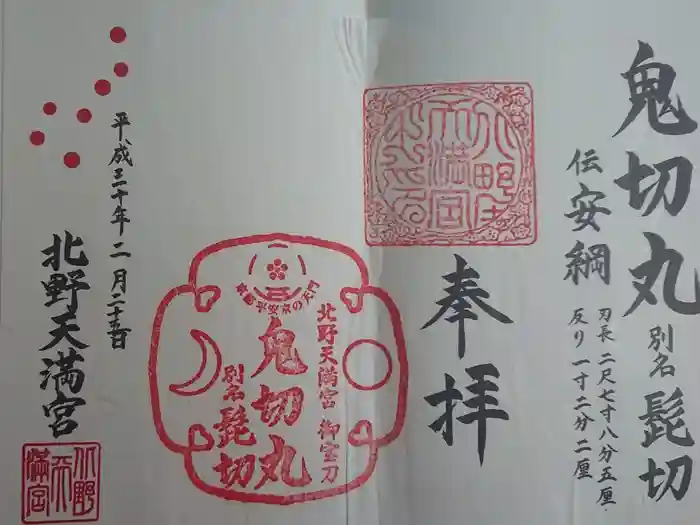 鬼切丸 別名 髭切
伝安綱 刃長 二尺七寸八分五厘、
反り 一寸二分二厘
奉拝
北野天満宮 御宝刀
鬼切丸
別名 髭切
平成三十年二月二十五日
北野天満宮
北野
天
満宮